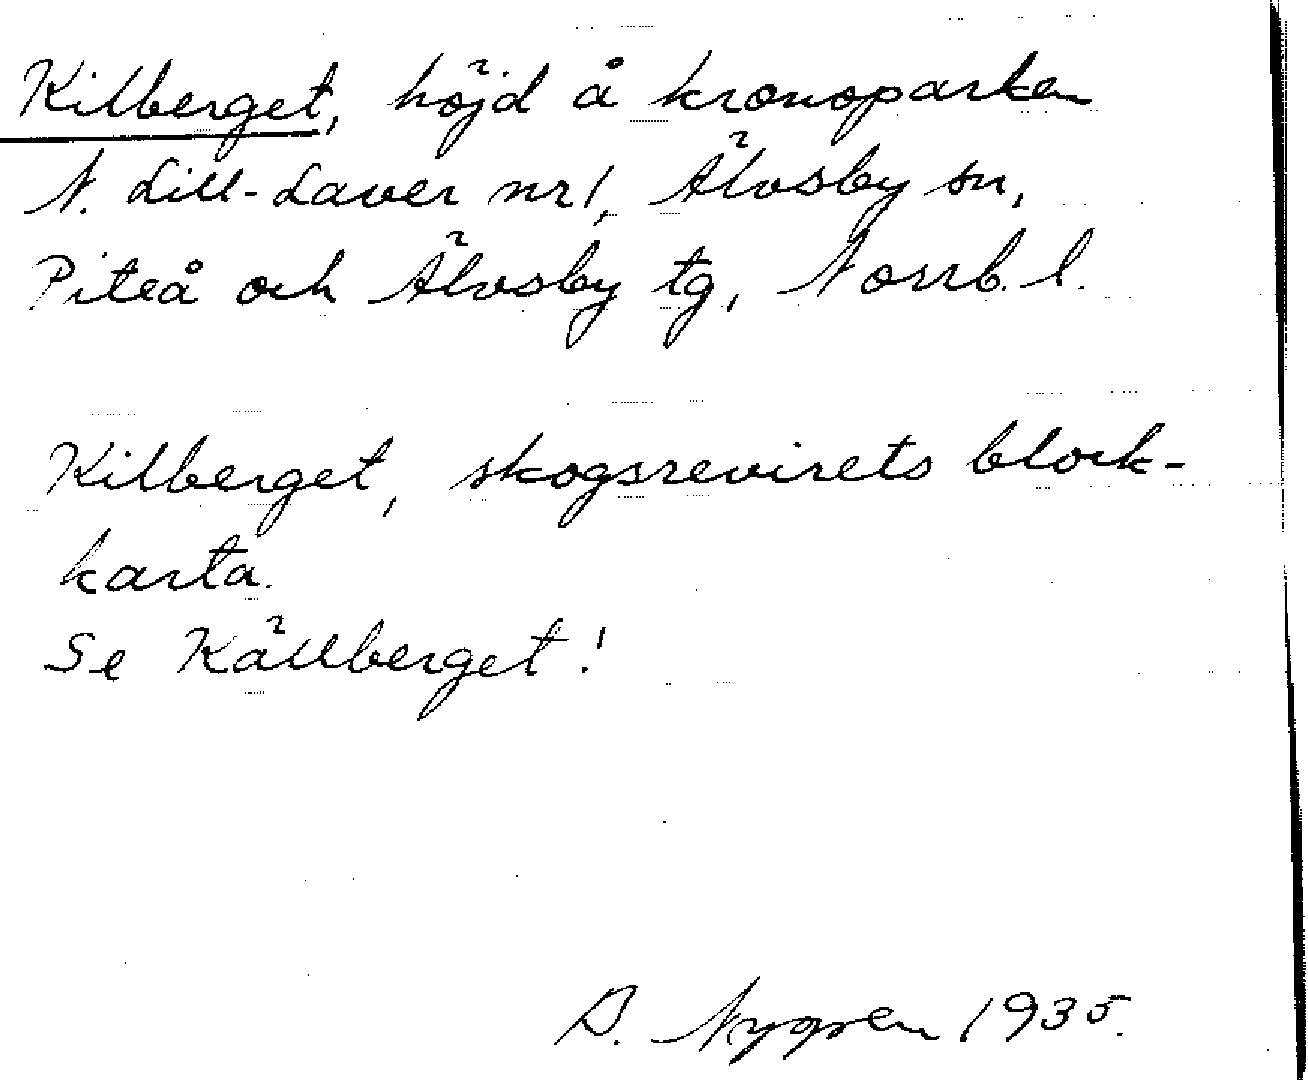 Kilberget, höjd å kronoparken
N. Lill-Laver nr 1, Älvsby sn,
Piteå och Älvsby tg, Norrb. l.
Kilberget, skogsrevirets block-
karta.
Se Källberget!
Nygren 1935.